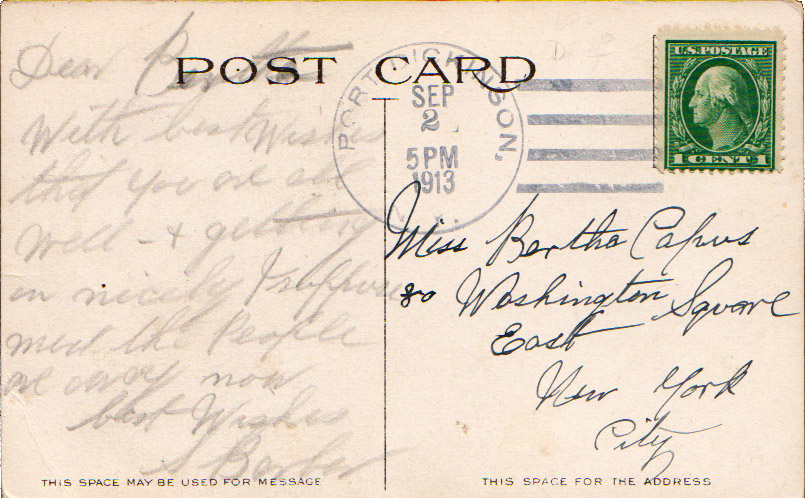 POST CARD
PORT DICKINSON,
SEP
2
5 PM
1913
U.S. POSTAGE
1 CENT 1
Dear Bertha
With best Wishes
that you are all
well - & getting
on nicely I suppose
most the People
are away now
best Wishes
Miss Bertha Capus
80 Washington Square
East
New York
City
THIS SPACE MAY BE USED FOR MESSAGE
THIS SPACE FOR THE ADDRESS